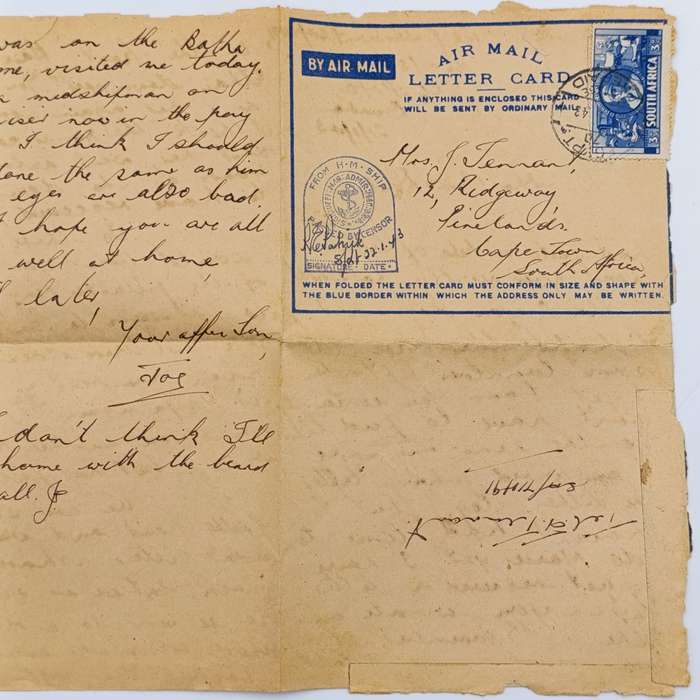 was on the Batha
me, visited me today.
a midshipman on
iser now in the
I think I should
done the same as him
eyes are also bad.
I hope you are all
well at home,
later,
Your affec Son,
Joe
don't think I'll
home with the beard
all. J.
BY AIR MAIL
AIR MAIL
LETTER CARD
IF ANYTHING IS ENCLOSED THIS CARD
WILL BE SENT BY ORDINARY MAIL.
3D
SOUTH AFRICA
Mrs. J. Tennant,
12, Ridgeway,
Pinelands.
Cape Town,
South Africa,
FROM H·M·SHIP
PASSED BY CENSOR
22.1.43
SIGNATURE · DATE ·
WHEN FOLDED THE LETTER CARD MUST CONFORM IN SIZE AND SHAPE WITH
THE BLUE BORDER WITHIN WHICH THE ADDRESS ONLY MAY BE WRITTEN.
Tennant